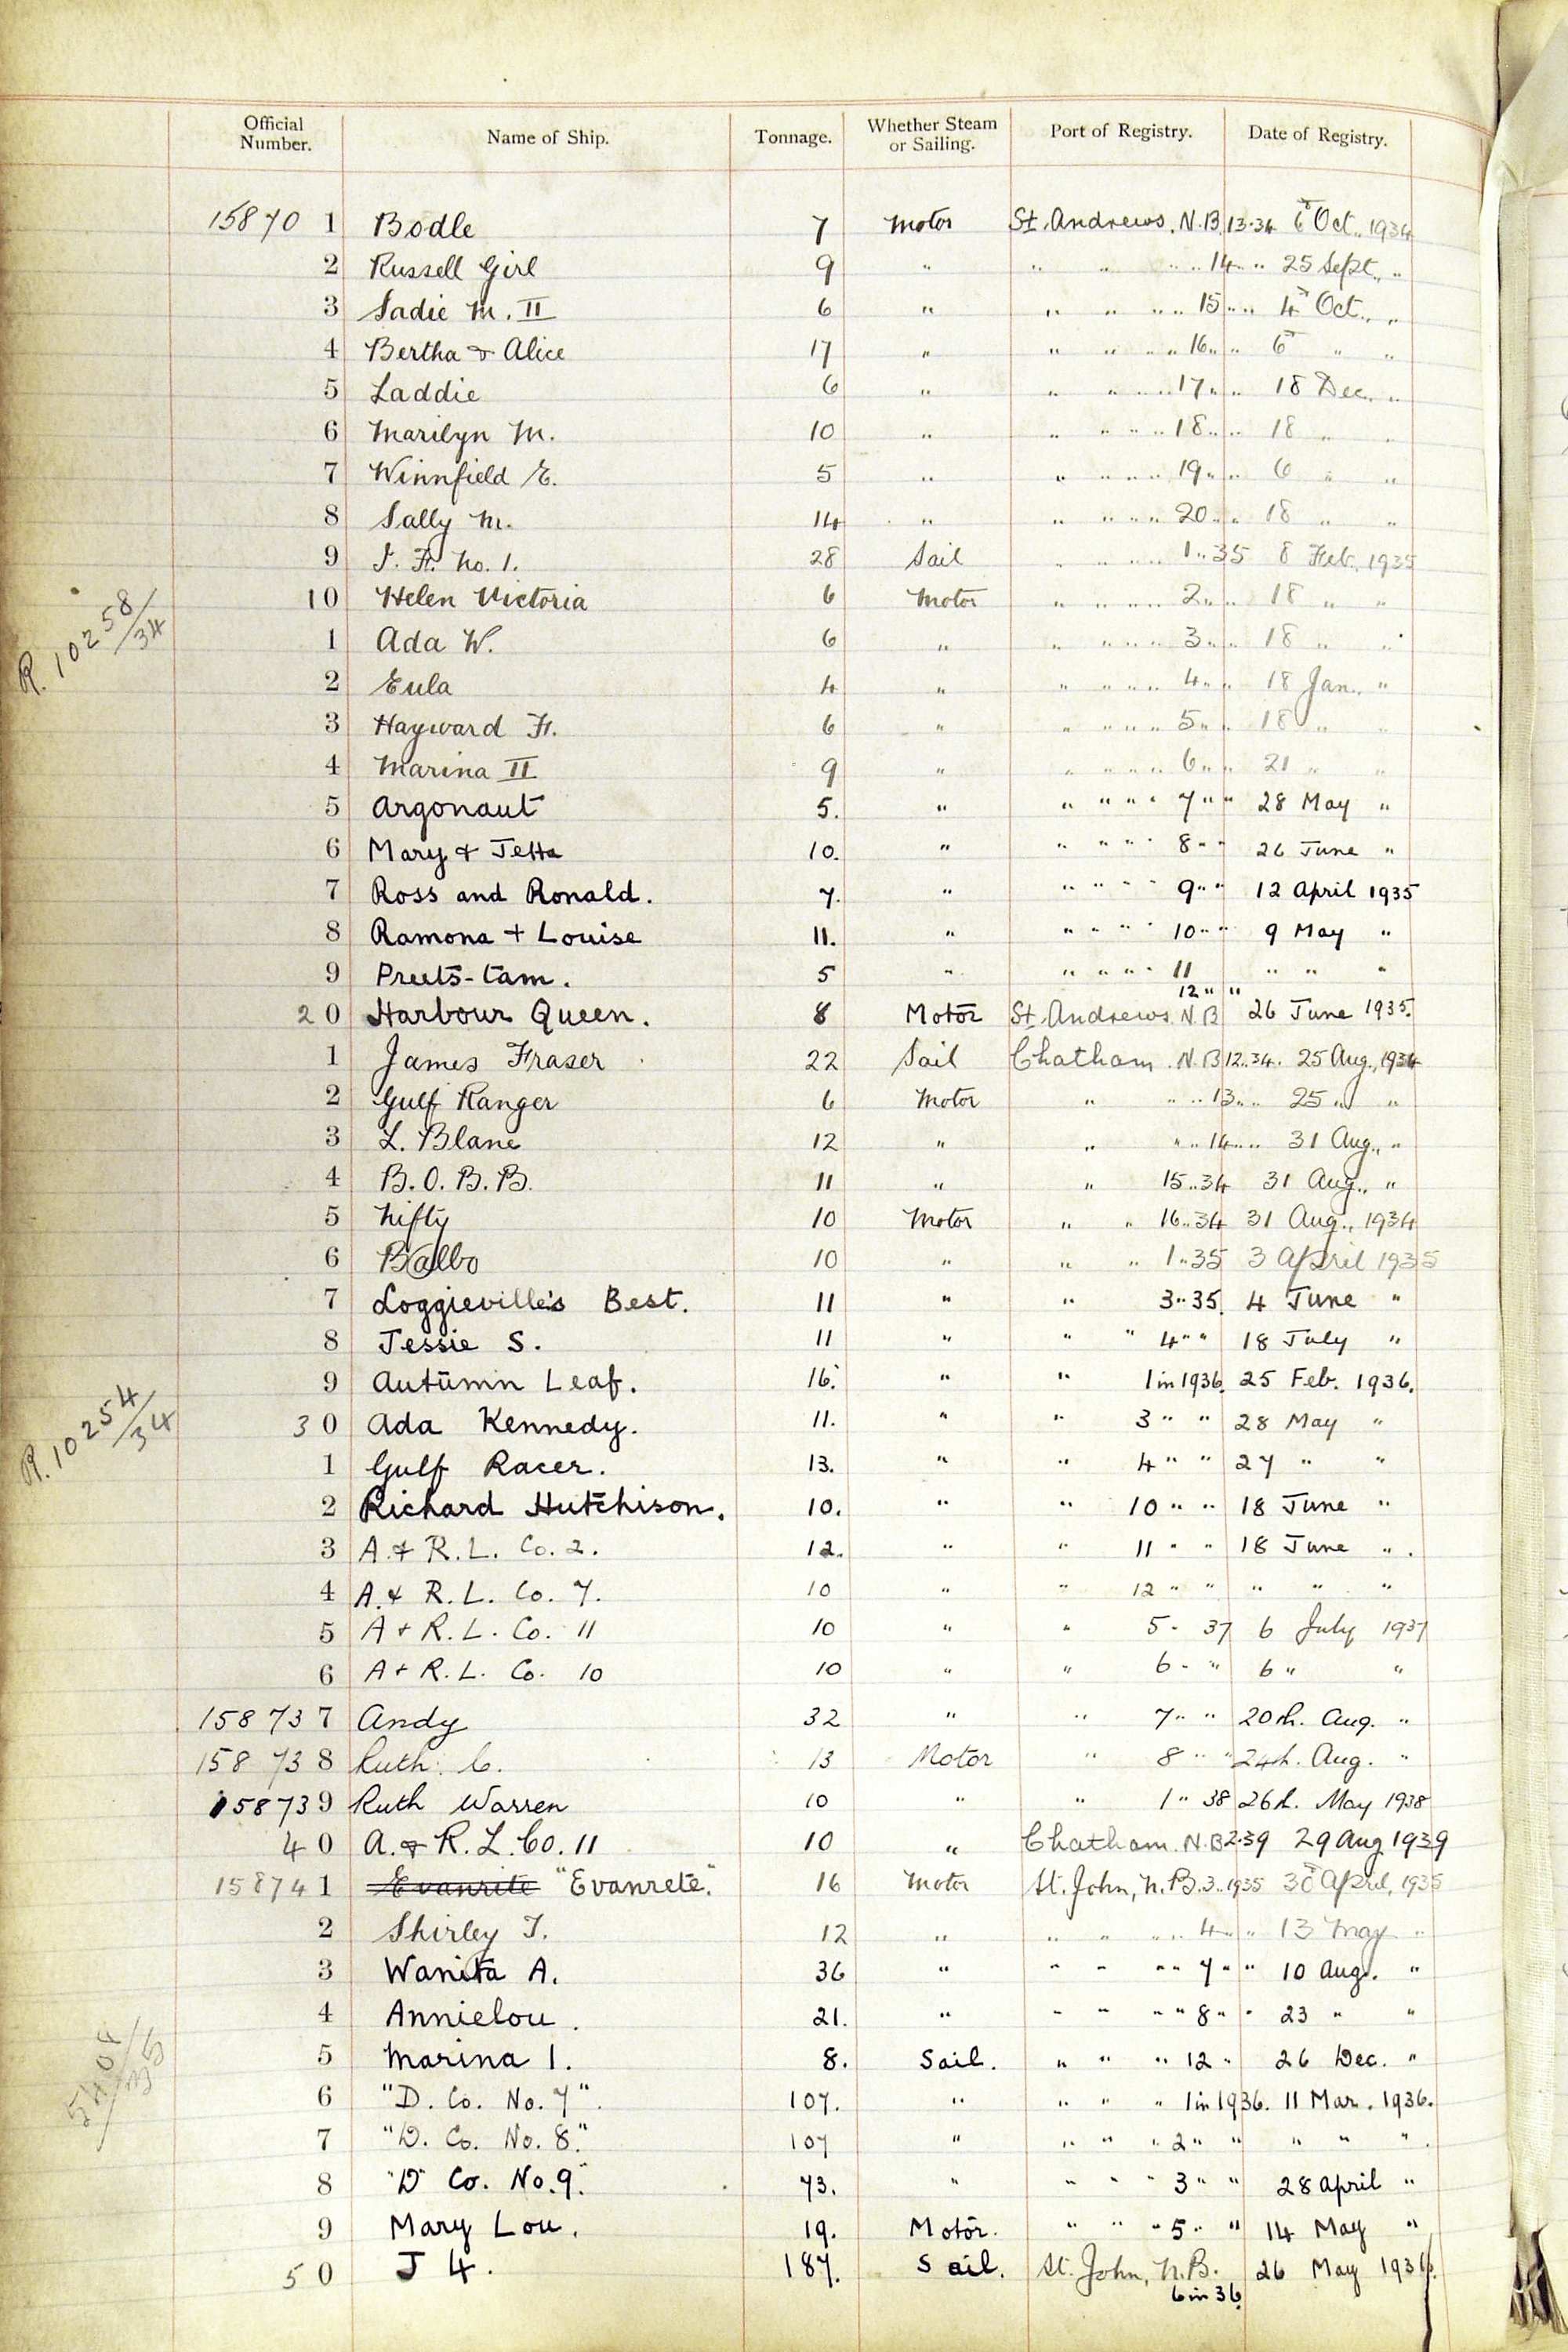 Official Number. Name of Ship. Tonnage. Whether Steam or Sailing. Port of Registry. Date of Registry.
15870 1 Bodle 7 Motor St. Andrews, N.B. 13·34 6th Oct., 1934
2 Russell Girl 9 " " " " " 14 " " 25 Sept., "
3 Sadie M. II 6 " " " " " 15 " " 4th Oct., "
4 Bertha & Alice 17 " " " " " 16 " " 6th " "
5 Laddie 6 " " " " " 17 " " 18 Dec., "
6 Marilyn M. 10 " " " " " 18 " " 18 " "
7 Winnfield E. 5 " " " " " 19 " " 6 " "
8 Sally M. 14 " " " " " 20 " " 18 " "
9 J. F. No. 1. 28 Sail " " " " 1 " 35 8 Feb., 1935
10 Helen Victoria 6 Motor " " " " 2 " " 18 " "
1 Ada W. 6 " " " " " 3 " " 18 " "
2 Eula 4 " " " " " 4 " " 18 Jan., "
3 Hayward F. 6 " " " " " 5 " " 18 " "
4 Marina II 9 " " " " " 6 " " 21 " "
5 Argonaut 5. " " " " " 7 " " 28 May "
6 Mary & Jetta 10. " " " " " 8 " " 26 June "
7 Ross and Ronald. 7. " " " " " 9 " " 12 April 1935
8 Ramona + Louise 11. " " " " " 10 " " 9 May "
9 Preets-tam. 5 " " " " " 11 " " "
20 Harbour Queen. 8 Motor St. Andrews N.B 12 " " 26 June 1935.
1 James Fraser 22 Sail Chatham. N.B 12..34. 25 Aug., 1934
2 Gulf Ranger 6 Motor " " " 13 " " 25 " "
3 L. Blane 12 " " " " 14 " " 31 Aug., "
4 B.O.B.B. 11 " " 15..34 31 Aug., "
5 Nifty 10 Motor " " 16..34 31 Aug., 1934
6 Balbo 10 " " " 1..35 3 April 1935
7 Loggieville's Best. 11 " " 3..35. 4 June "
8 Jessie S. 11 " " " 4 " " 18 July "
9 Autumn Leaf. 16. " " 1 in 1936. 25 Feb. 1936.
30 Ada Kennedy. 11. " " 3 " " 28 May "
1 Gulf Racer. 13. " " 4 " " 27 " "
2 Richard Hutchison. 10. " " 10 " " 18 June "
3 A. & R.L. Co. 2. 12. " " 11 " " 18 June " .
4 A. & R.L. Co. 7. 10 " " 12 " " " " "
5 A + R.L. Co. 11 10 " " 5 - 37 6 July 1937
6 A + R.L. Co. 10 10 " " 6 - " 6 " "
158737 Andy 32 " " 7 " " 20th. Aug. "
158738 Ruth C. 13 Motor " 8 " " 24th. Aug. "
158739 Ruth Warren 10 " " 1 " 38 26th. May 1938
40 A. & R.L. Co. 11 10 " Chatham. N.B 2·39 29 Aug 1939
158741 Evanrite "Evanrete." 16 Motor St. John, N.B. 3..1935 30th April, 1935
2 Shirley T. 12 " " " " " 4 " " 13 May "
3 Wanita A. 36 " " " " " 7 " " 10 Aug. "
4 Annielou. 21. " " " " " 8 " " 23 " "
5 Marina 1. 8. Sail. " " " 12 " 26 Dec. "
6 "D. Co. No. 7". 107. " " " " 1 in 1936. 11 Mar. 1936.
7 "D. Co. No. 8." 107 " " " " 2 " " " " "
8 "D Co. No. 9." 73. " " " " 3 " " 28 April "
9 Mary Lou. 19. Motor. " " " 5 " " 14 May "
50 J 4. 187. Sail. St. John, N.B. 26 May 1936.
6 in 36.
R. 10258/34
R. 10254/34